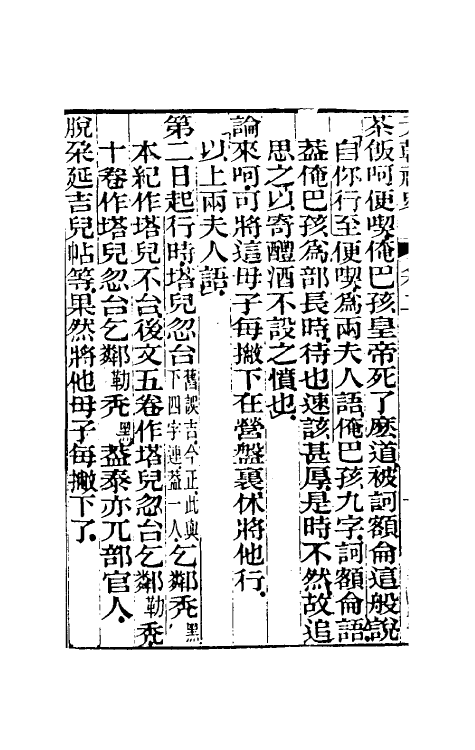 茶飯呵便喫俺巴孩皇帝死了麽道被訶額侖這般說
自你行至便喫爲兩夫人語俺巴孩九字訶額侖語
葢俺巴孩爲部長時待也速該甚厚是時不然故追
思之以寄醴酒不設之憤也
論來呵可將這母子每撇下在營盤裏休將他行
以上兩夫人語
第二日起行時塔兒忽台舊誤吉今正此與下四字連葢一人乞鄰禿黑
本紀作塔兒不台後文五卷作塔兒忽台乞鄰勒禿
十卷作塔兒忽台乞鄰勒禿黑葢泰亦兀部官人
脫朶延吉兒帖等果然將他母子每撇下了